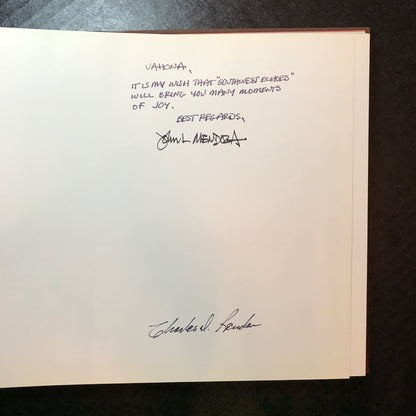 VAHONA,
IT IS MY WISH THAT "SOUTHWEST ECHOES"
WILL BRING YOU MANY MOMENTS
OF JOY.
BEST REGARDS,
JOHN L. MENDOZA
Charles D.